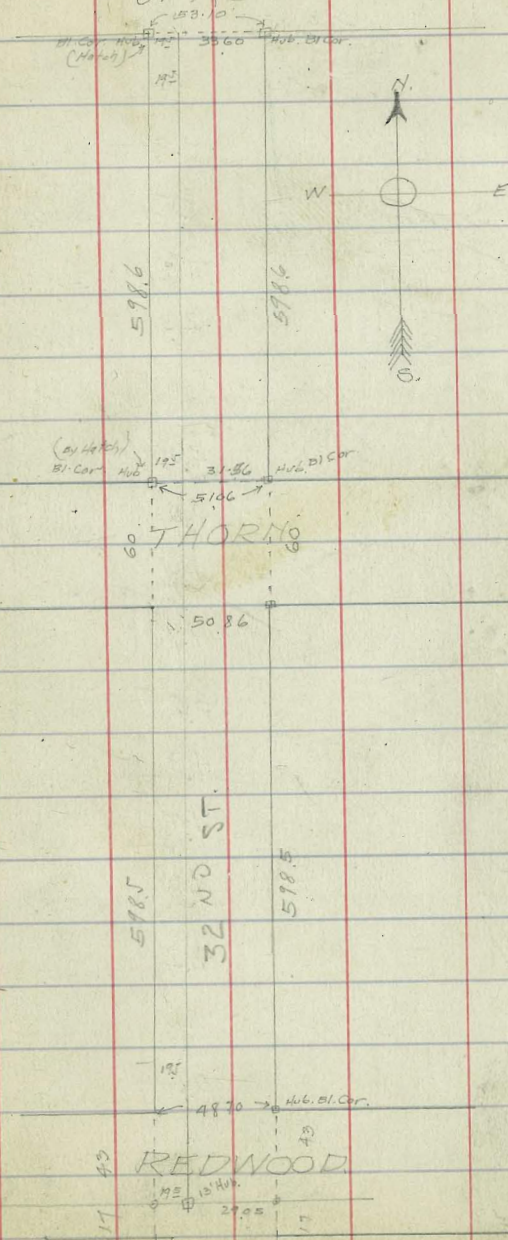 53.10
Bl. Cor. Hub 19⁵ 33 60 Hub. Bl Cor.
(Hatch)
19⁵
N.
W E
S.
598.6 598.6
(By Hatch)
Bl-Cor. Hub 19⁵ 31.56 Hub. Bl Cor
51 06
60 THORN 60
50 86
32 ND ST.
598.5 598.5
19⁵
48 70 Hub. Bl. Cor.
43 REDWOOD 43
19⁵ 13' Hub.
29.05
17 17